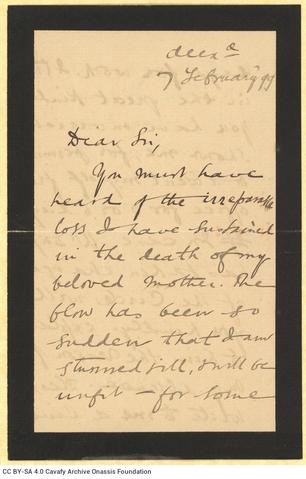 Alexa
7 February 99
Dear Sir,
You must have
heard of the irreparable
loss I have sustained
in the death of my
beloved mother. The
blow has been so
sudden that I am
stunned still, & will be
unfit — for some
CC BY-SA 4.0 Cavafy Archive Onassis Foundation